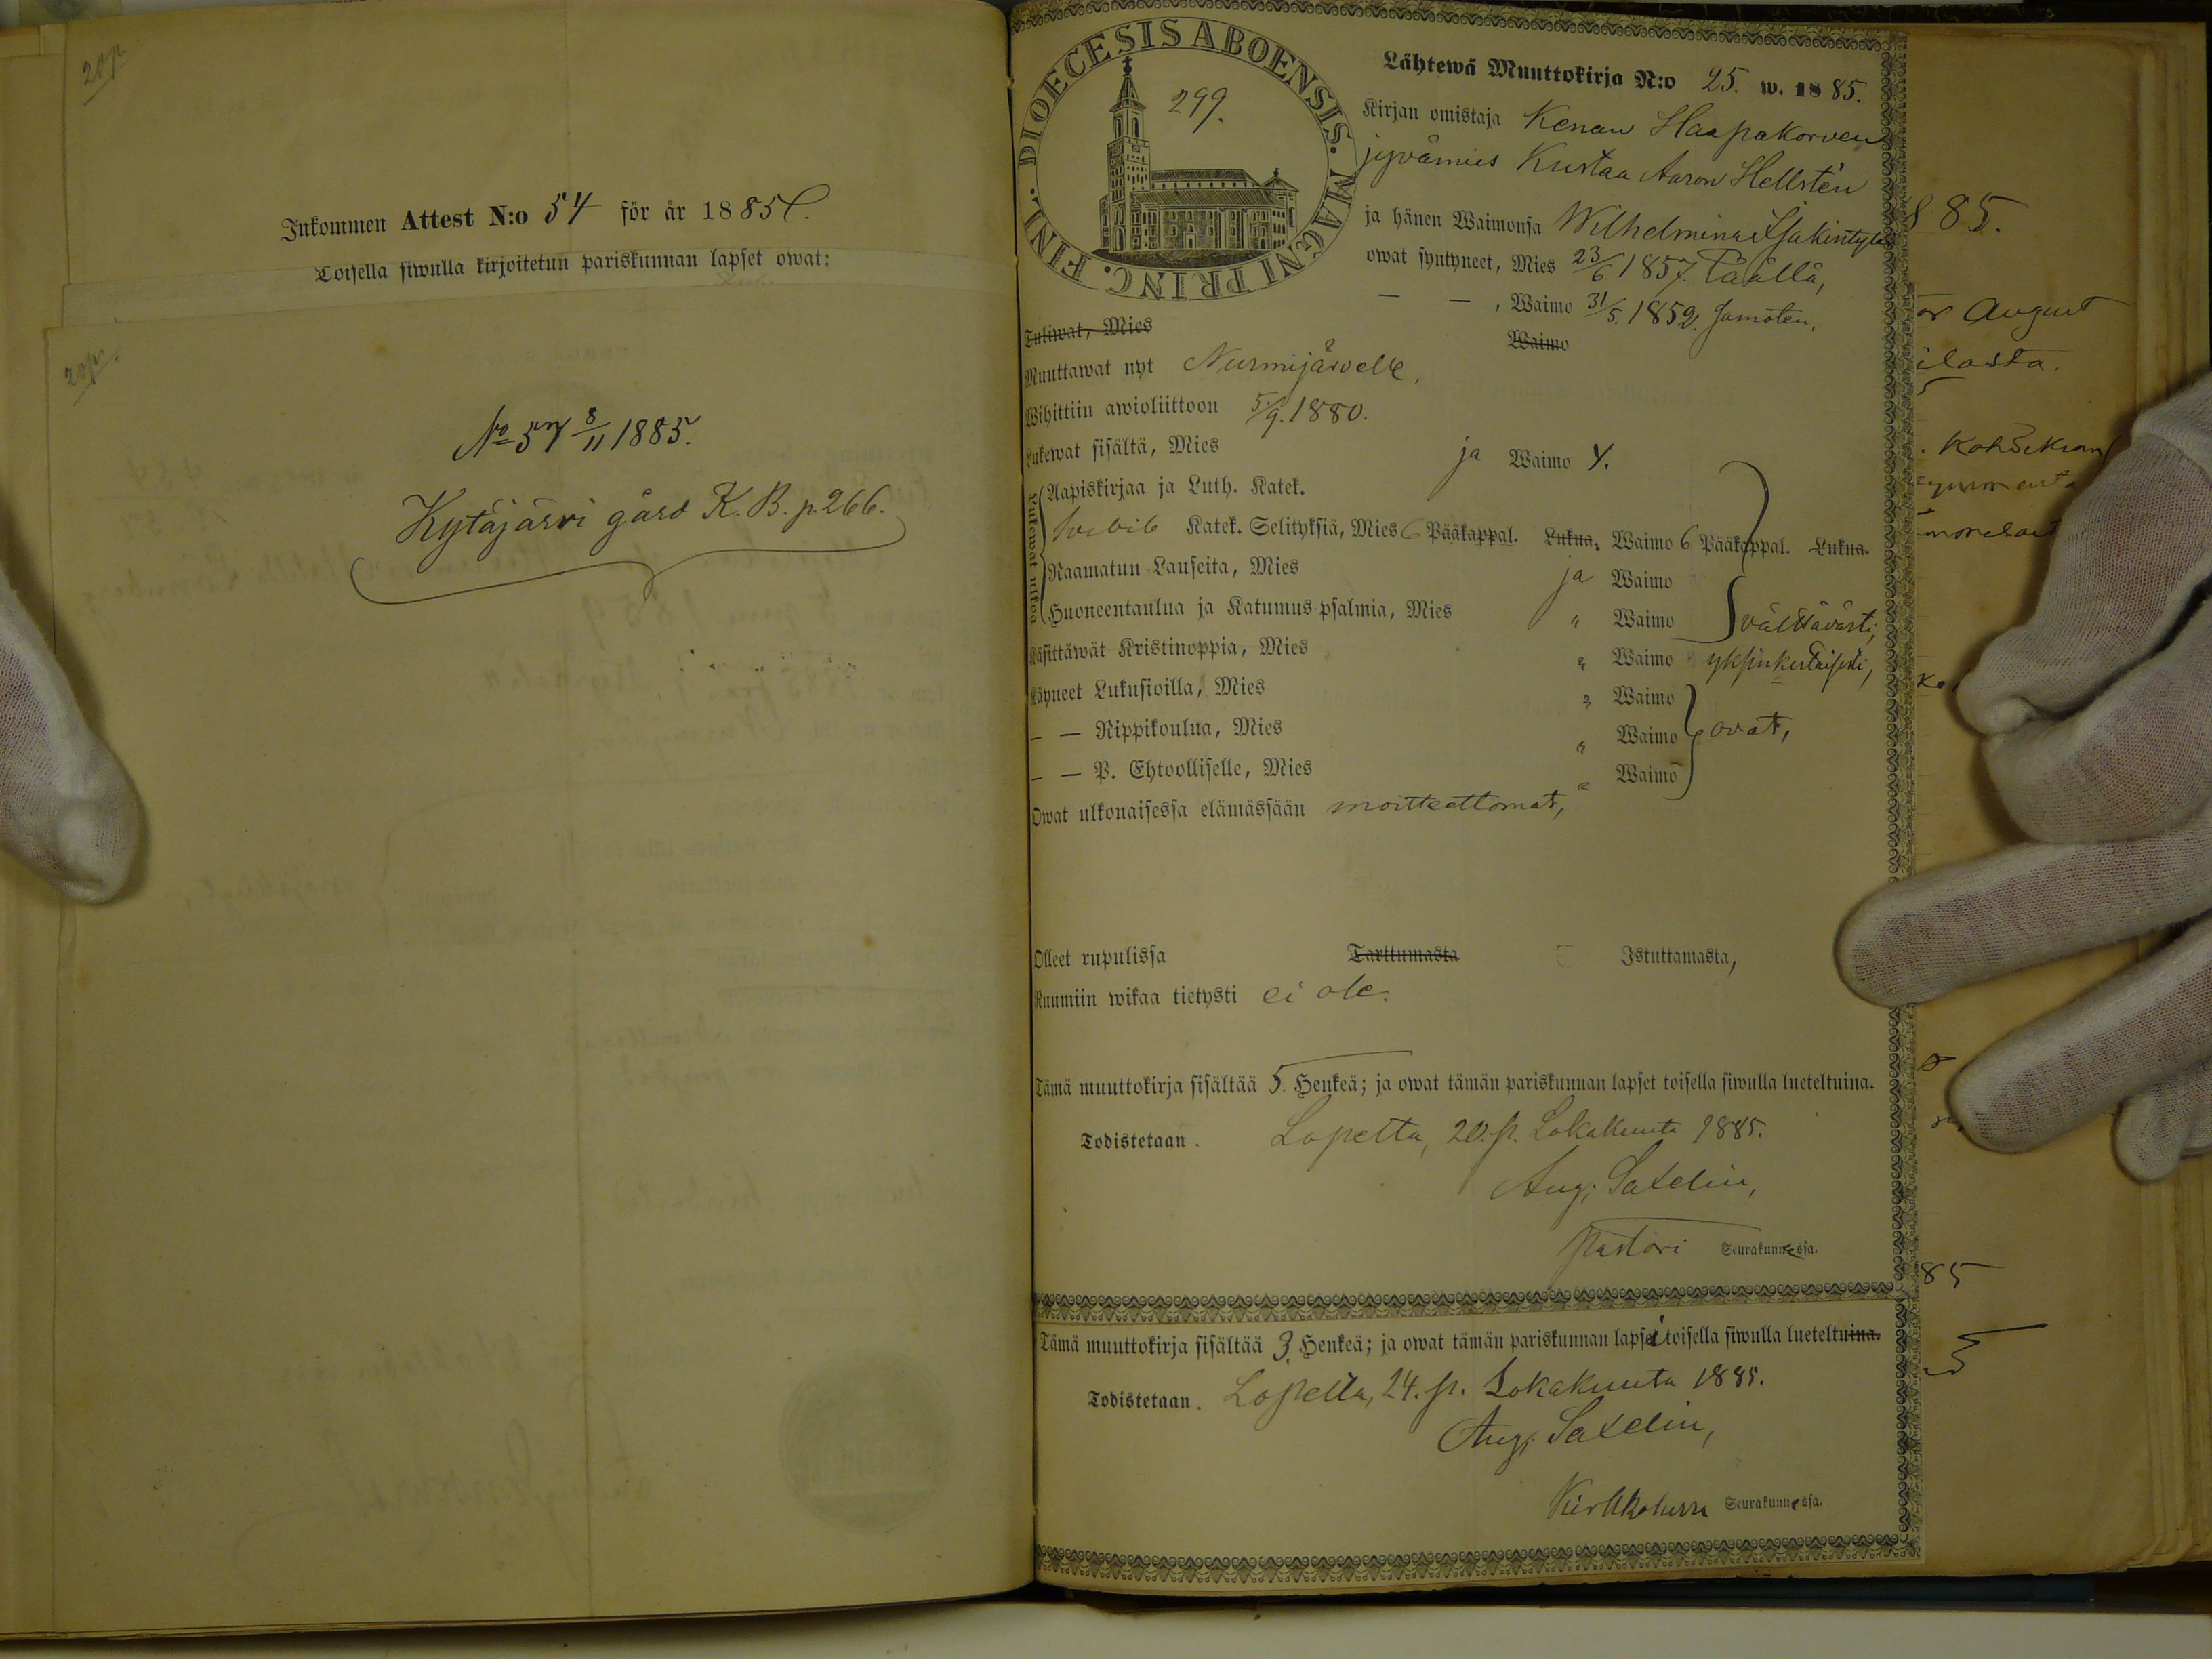 20p
Inkommen Attest N:o 54 för år 1885
Toisella siwulla kirjoitetun pariskunnan lapset owat:
20p.
No 54 8/11 1885.
Kytäjärvi gård K. B. p. 266.
DIOECESIS ABOENSIS. MAGNI PRINC. FINL.
299.
Lähtewä Muuttokirja N:o 25. w. 1885.
Kirjan omistaja Kenan Haapakorven
jyvämies Kustaa Aaron Hellstén
ja hänen Waimonsa Wilhelmina
owat syntyneet, Mies 23/6 1857. Täällä,
— — , Waimo 31/5. 1852. Samoten,
Tuliwat, Mies Waimo
Muuttawat nyt Nurmijärvelle,
Wihittiin awioliittoon 5/9. 1880.
Lukewat sisältä, Mies ja Waimo y.
Lukewat ulkoa
Aapiskirjaa ja Luth. Katek.
Katek. Selityksiä, Mies 6 Pääkappal. Lukua. Waimo 6 Pääkappal. Lukua.
Raamatun Lauseita, Mies ja Waimo
Huoneentaulua ja Katumus-psalmia, Mies " Waimo välttävästi,
Käsittäwät Kristinoppia, Mies " Waimo yksinkertaisesti,
Käyneet Lukusioilla, Mies " Waimo
— — Rippikoulua, Mies " Waimo ovat,
— — P. Ehtoolliselle, Mies " Waimo
Owat ulkonaisessa elämässään moitteettomat,
Olleet rupulissa Tarttumasta Istuttamasta,
Ruumiin wikaa tietysti ei ole.
Tämä muuttokirja sisältää 5. Henkeä; ja owat tämän pariskunnan lapset toisella siwulla lueteltuina.
Todistetaan. Lopella, 20. p. Lokakuuta 1885.
Aug. Saxelin,
Pastori Seurakunnassa.
Tämä muuttokirja sisältää 3. Henkeä; ja owat tämän pariskunnan lapsei toisella siwulla lueteltuina.
Todistetaan. Lopella, 24. p. Lokakuuta 1885.
Aug. Saxelin,
Seurakunnassa.
885.
or August
ilasta.
85